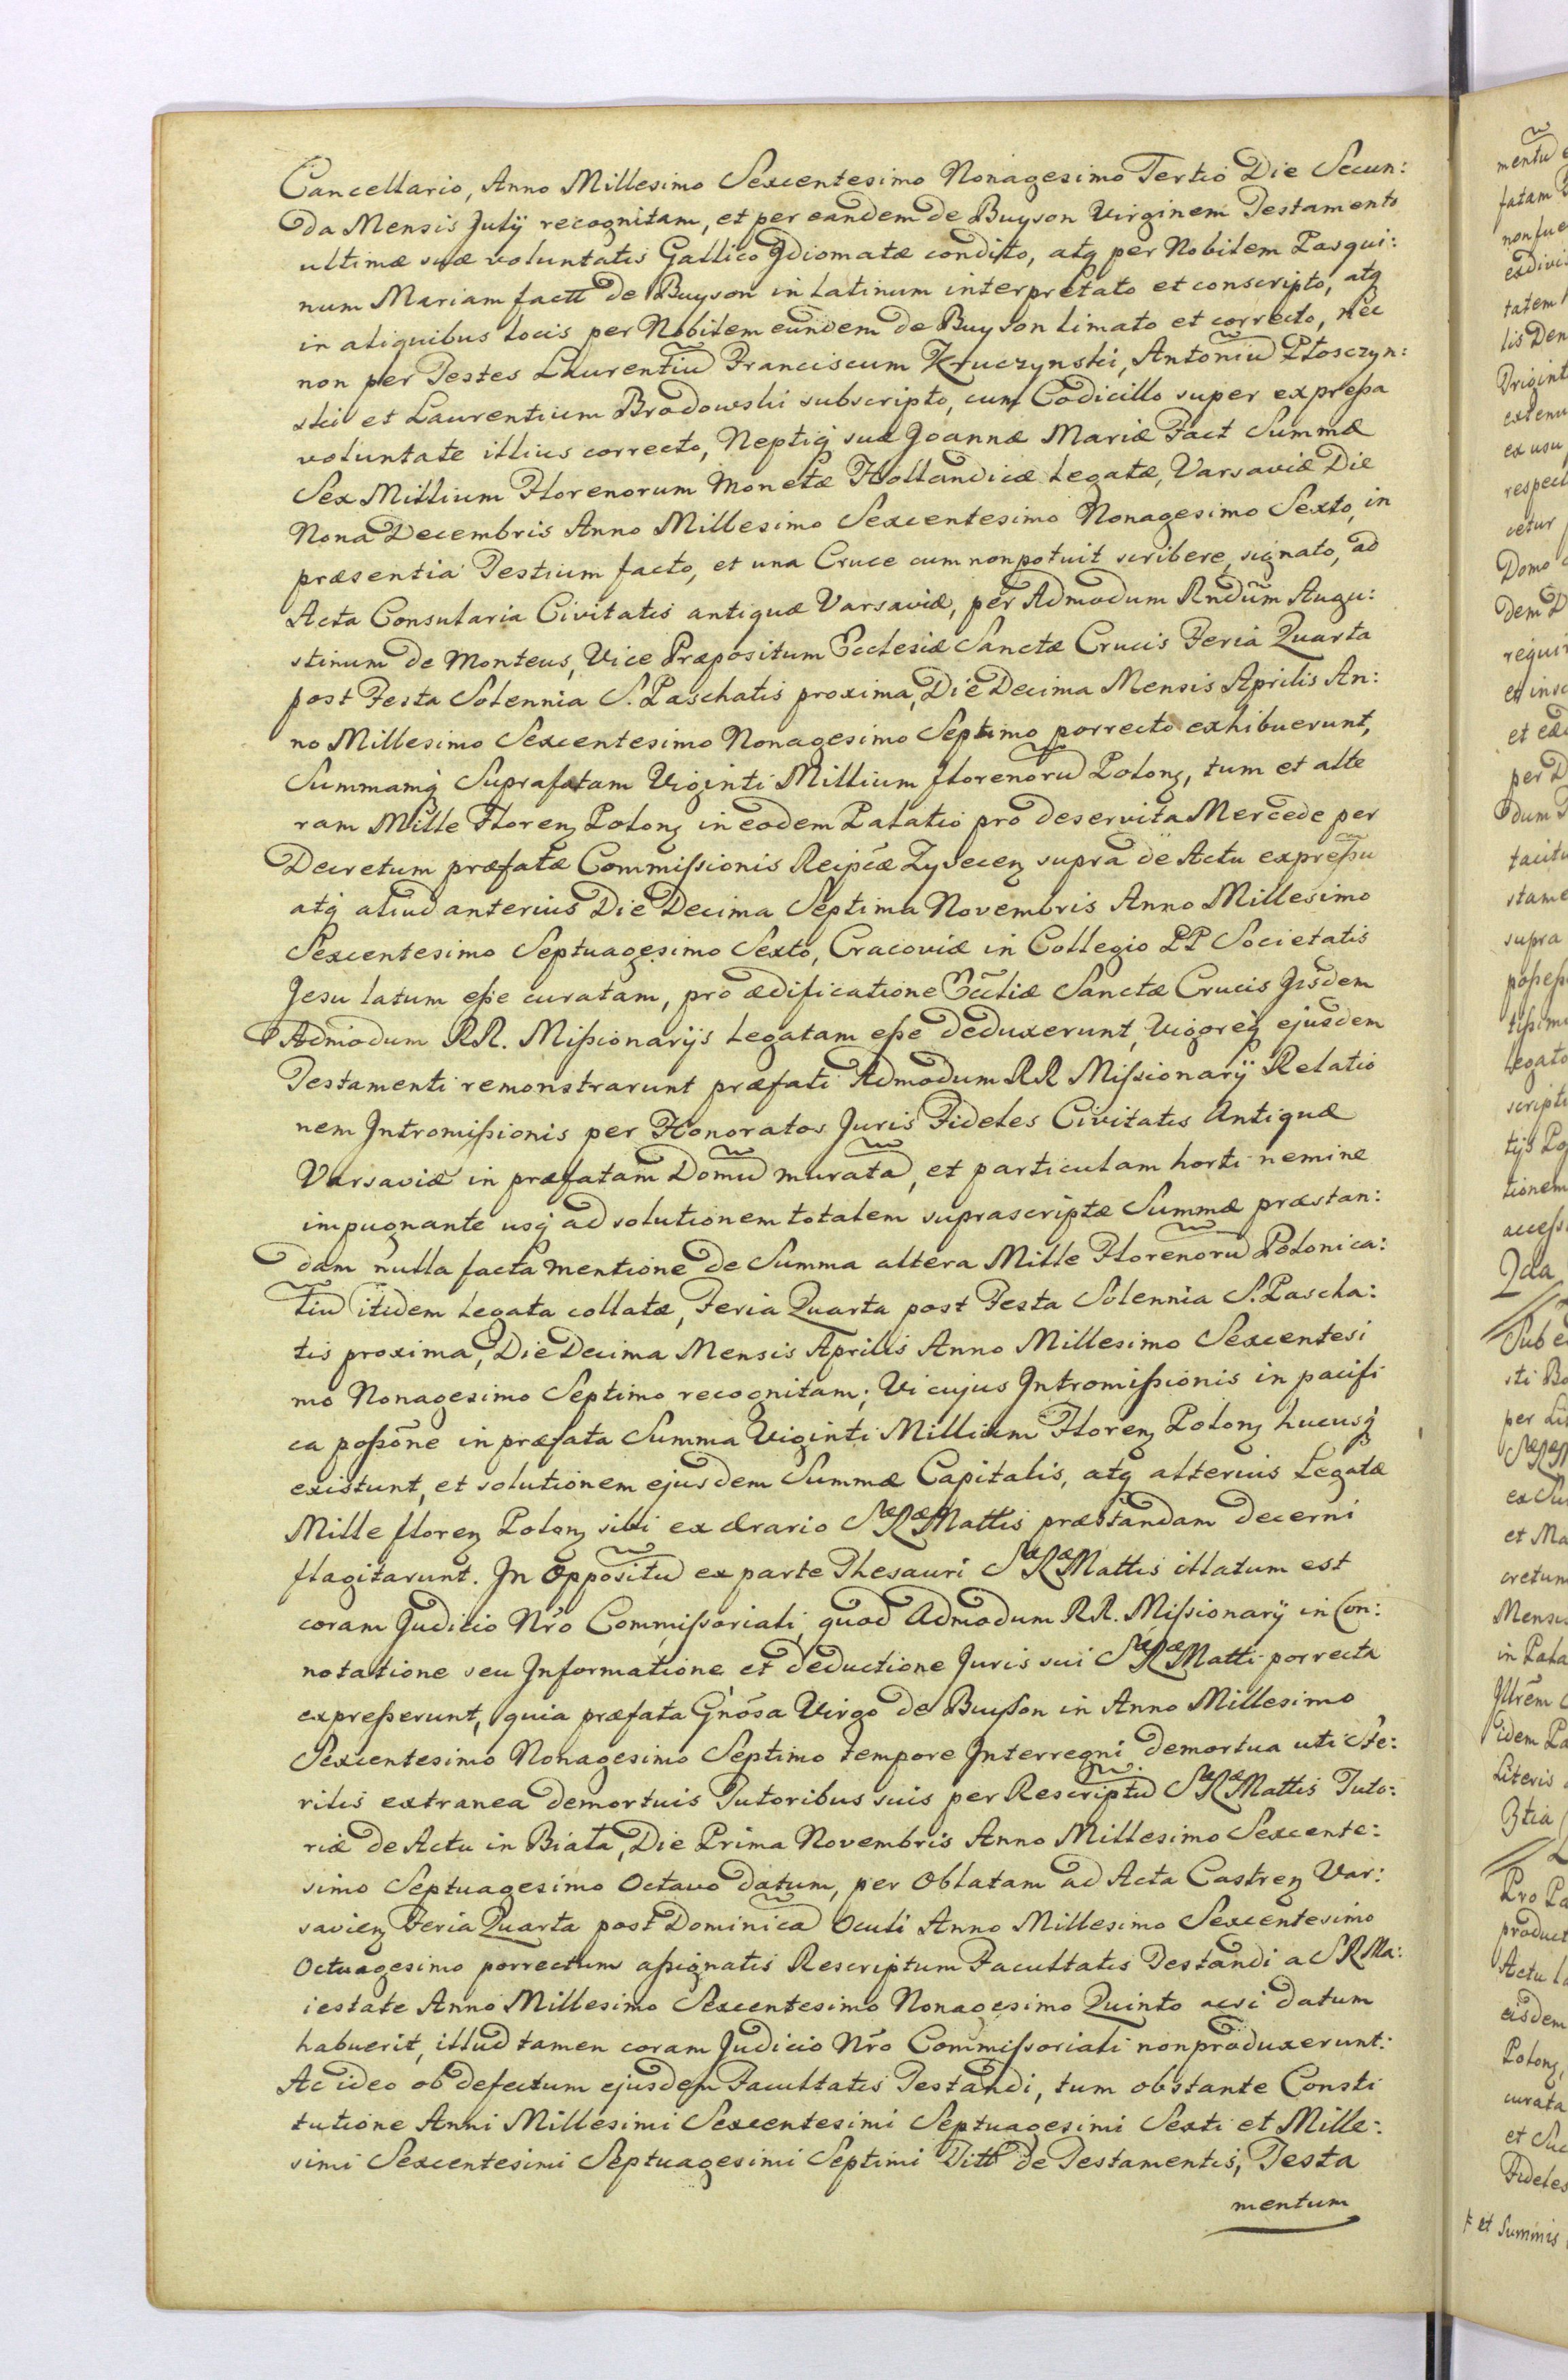 Cancellario, Anno Millesimo Sexcentesimo Nonagesimo Tertio Die Secun:
da Mensis Julÿ recognitam, et per eandem de Buyson Virginem Testamento
ultimæ suæ voluntatis Gallico Jdiomatæ condito, atq per Nobilem Pasqui:
num Mariam factt de Buyson in Latinum interpretato et conscripto, atq
in aliquibus locis per Nobilem eundem de Buyson limato et correcto, nec
non per Testes Laurentiũ Franciscum Kruczynski, Antoniũ Płosczyn:
ski et Laurentium Brodowski subscripto, cum Codicillo super expreßa
voluntate illius correcto, Neptiq suæ Joannæ Mariæ Fact Summæ
Sex Millium Florenorum Monetæ Hollandicæ Legatæ, Varsaviæ Die
Nona Decembris Anno Millesimo Sexcentesimo Nonagesimo Sexto, in
præsentia Testium facto, et una Cruce cum non potuit scribere, signato, ad
Acta Consularia Civitatis antiquæ Varsaviæ, per Admodum Rndũm Augu:
stinum de Monteus, Vice Præpositum Ecclesiæ Sanctæ Crucis Feria Quarta
post Festa Solennia S. Paschatis proxima, Die Decima Mensis Aprilis An:
no Millesimo Sexcentesimo Nonagesimo Septimo porrecto exhibuerunt,
Summamq Suprafatam Viginti Millium florenorũ Polonꝫ, tum et alte
ram Mille Florenꝫ Polonꝫ in eodem Palatio pro deservita Mercede per
Decretum præfatæ Commißionis Reipcæ Zyvecenꝫ supra de Actu expreßũ
atq aliud anterius Die Decima Septima Novembris Anno Millesimo
Sexcentesimo Septuagesimo Sexto, Cracoviæ in Collegio PP Societatis
Jesu latum eße curatam, pro ædificatione Ecc̃liæ Sanctæ Crucis Jisdem
Admodum RR. Mißionarÿs Legatam eße deduxerunt, Vigoreq ejusdem
Testamenti remonstrarunt præfati Admodum RR Mißionarÿ Relatio
nem Jntromißionis per Honoratos Juris Fideles Civitatis Antiquæ
Varsaviæ in præfatam Domũ muratã, et particulam horti nemine
impugnante usq ad solutionem totalem suprascriptæ Summæ præstan:
dam nulla facta mentione de Summa altera Mille Florenorũ Polonica:
liũ itidem Legata collatæ, Feria Quarta post Festa Solennia S. Pascha:
tis proxima, Die Decima Mensis Aprilis Anno Millesimo Sexcentesi
mo Nonagesimo Septimo recognitam; Vi cujus Jntromißionis in pacifi
ca poßõne in præfata Summa Viginti Millium Florenꝫ Polonꝫ hucusq
existunt, et solutionem ejusdem Summæ Capitalis, atq alterius Legatæ
Mille florenꝫ Polonꝫ sibi ex Ærario SæRæMattis præstandam decerni
flagitarunt. Jn Oppositũ ex parte Thesauri SæRæMattis illatum est
coram Judicio Nrõ Commißoriali, quod Admodum RR. Mißionarÿ in Con:
notatione seu Jnformatione et deductione Juris sui SæRæMatti porrecta
expreßerunt, quia præfata Gnõsa Virgo de Buyson in Anno Millesimo
Sexcentesimo Nonagesimo Septimo tempore Jnterregni demortua uti Ste:
rilis extranea demortuis Tutoribus suis per Rescriptũ SæRæMattis Tuto:
riæ de Actu in Biała, Die Prima Novembris Anno Millesimo Sexcente:
simo Septuagesimo Octavo datum, per Oblatam ad Acta Castrenꝫ Var:
savienꝫ Feria Quarta post Dominicã Oculi Anno Millesimo Sexcentesimo
Octuagesimo porrectum aßignatis Rescriptum Facultatis Testandi a SRMa:
iestate Anno Millesimo Sexcentesimo Nonagesimo Quinto acsi datum
habuerit, illud tamen coram Judicio Nrõ Commißoriali non produxerunt:
Ac ideo ob defectum ejusdem Facultatis Testandi, tum obstante Consti
tutione Anni Millesimi Sexcentesimi Septuagesimi Sexti et Mille:
simi Sexcentesimi Septuagesimi Septimi Titt de Testamentis, Testa
mentum